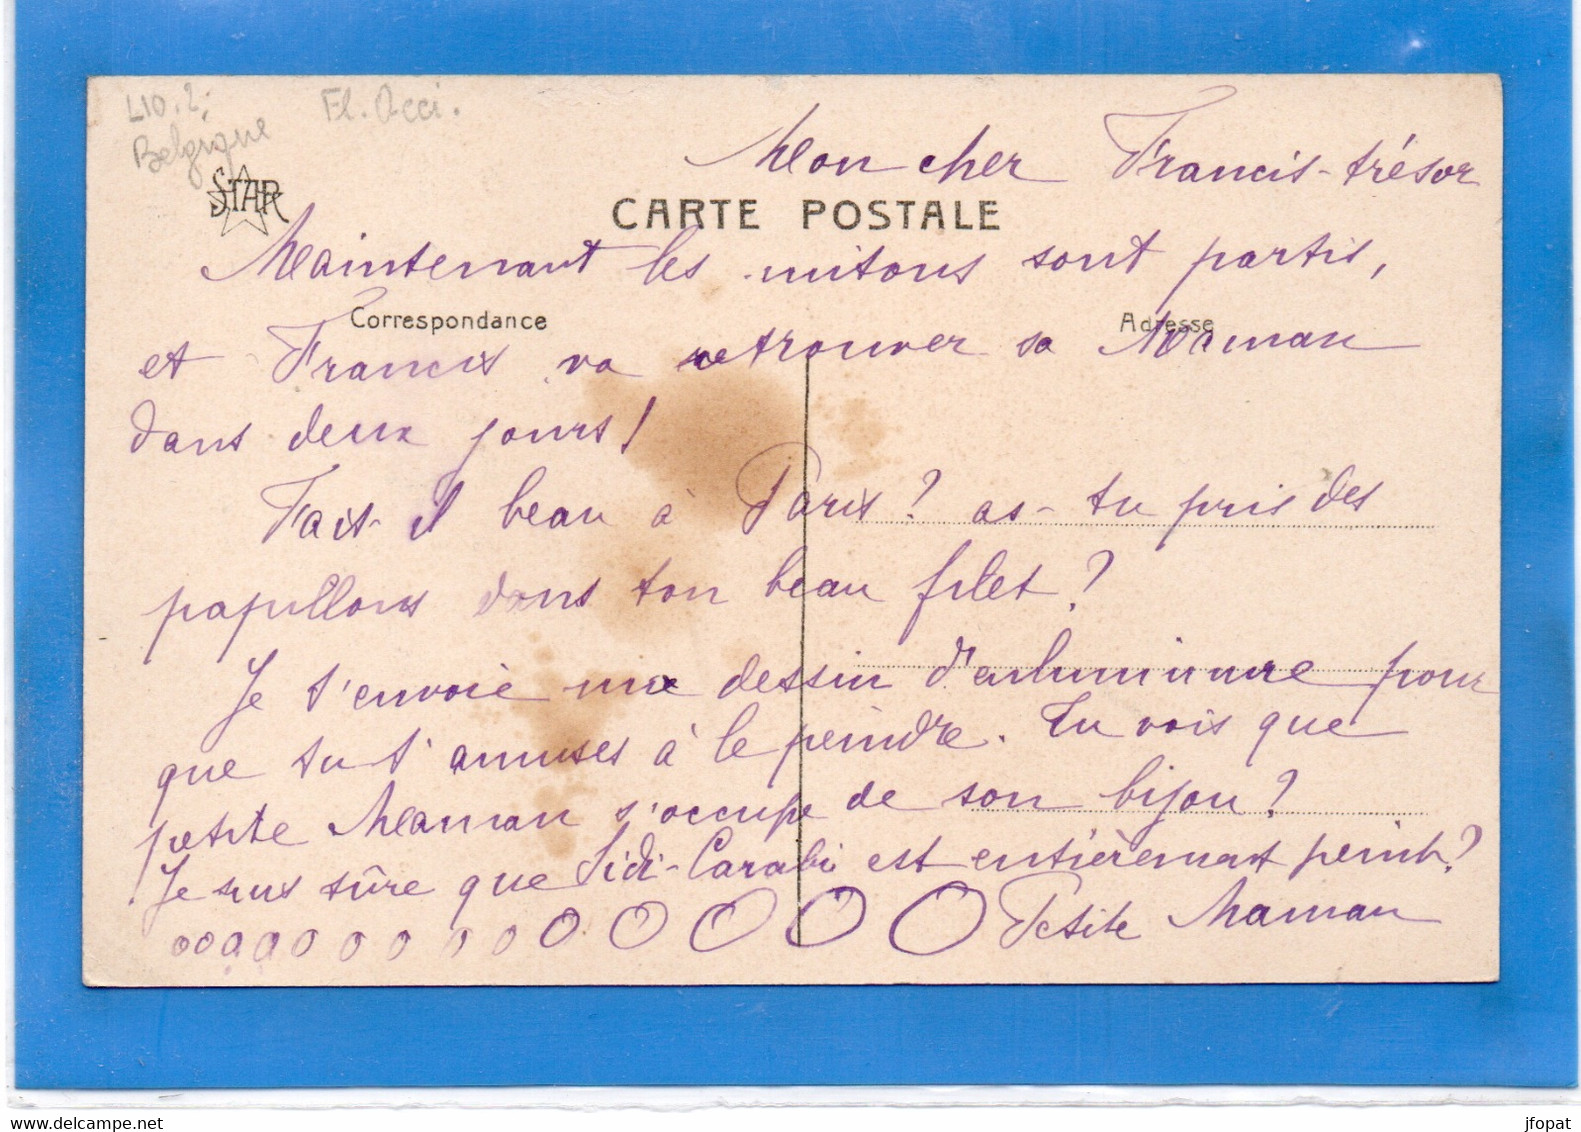 L10.2;
Belgique
Fl. Occi.
STAR
Mon cher Francis-trésor
CARTE POSTALE
Maintenant les mitons sont partis,
Correspondance
Adresse
et Francis va retrouver sa Maman
dans deux jours!
Fait-il beau à Paris? as-tu pris des
papillons dans ton beau filet?
Je t'envoie une dessin d'enluminure pour
que tu t'amuses à le peindre. Tu vois que
petite Maman s'occupe de son bijou?
Je suis sûre que Sidi-Carabi est entièrement peint?
Petite Maman
www.delcampe.net
jfopat